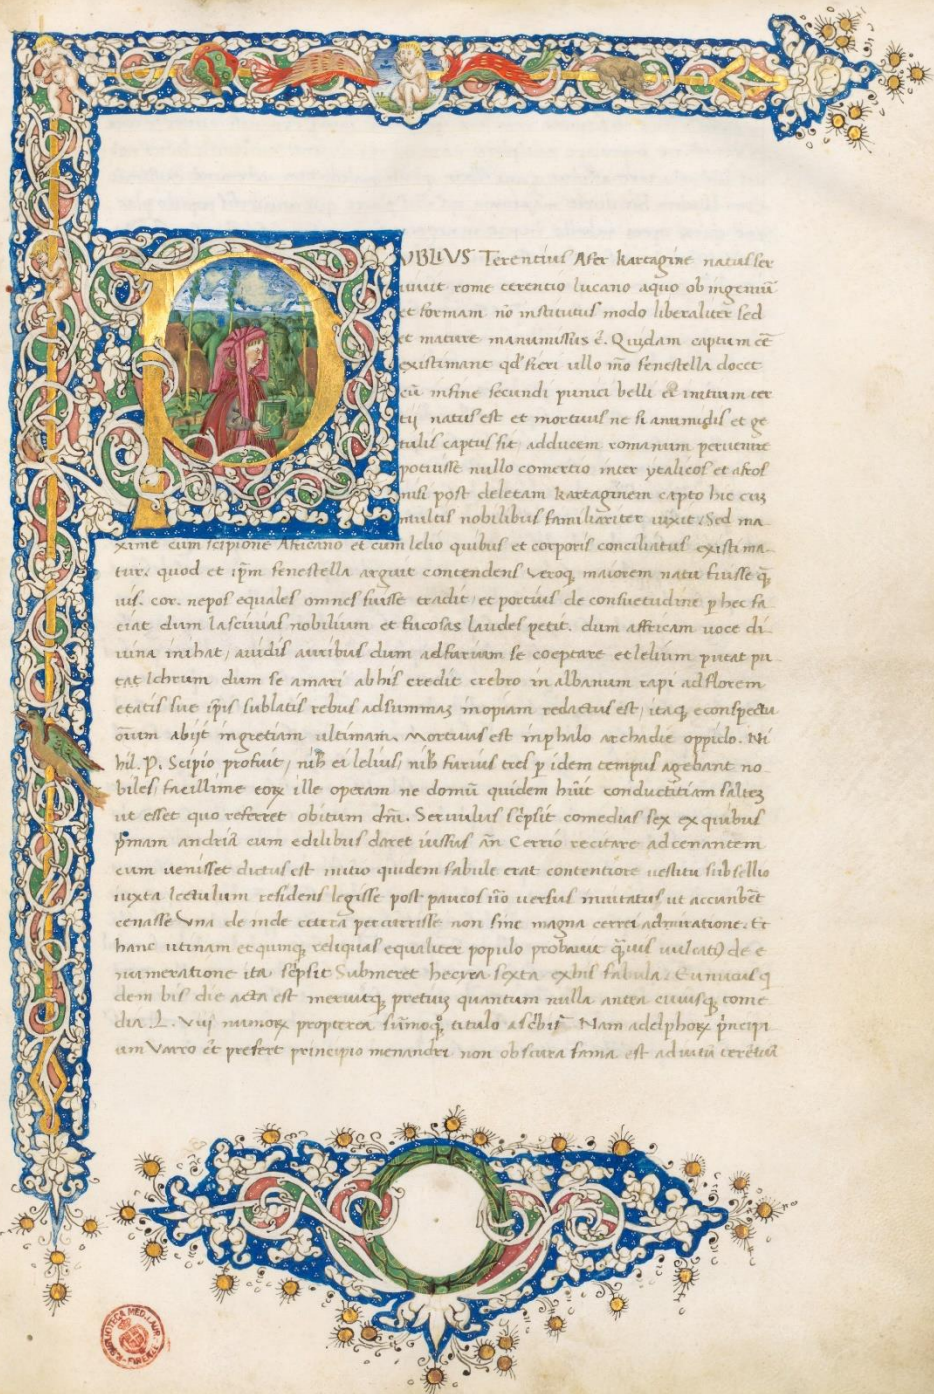 PUBLIUS Terentius Afer kartagine natus ser
uiuit rome terentio lucano aquo ob ingeniũ
et formam nõ institutus modo liberaliter sed
et mature manumissus ẽ. Quidam captum eẽ
existimant qd' fieri ullo mõ fenestella docet
cũ infine secundi punici belli & initium ter
tij natus est et mortuus ne si anumidis et ge
tulis captus sit adducem romanum peruenire
potuisse nullo comertio inter ytalicos et afros
nisi post deletam kartaginem capto hic cuz
multis nobilibus familiariter uixit. Sed ma
xime cum scipione Africano et cum lelio quibus et corporis conciliatus existima
tur. quod et ip̃m fenestella arguit contendens Vtroq maiorem natu fuisse q̃
uis. cor. nepos equales omnes fuisse tradit et portius de consuetudine p hec fa
ciat dum lasciuias nobilium et fucosas laudes petit. dum affricam uoce di
uina inhat, auidis auribus dum adfurium se coeptare et lelium putat pu
tat lchrum dum se amari abhis credit crebro in albanum rapi adflorem
etatis sue ip̃is sublatis rebus adsummaz inopiam redactus est, itaq econspectu
oĩum abijt ingretiam ultimam. Mortuus est inphalo archadie oppido. Ni
hil. P. Scipio profuit, nih̃ ei lelius, nih̃ furius tres p idem tempus agebant no
biles, facillime eoꝝ ille operam ne domũ quidem hũit conductitiam saltez
ut esset quo referret obitum dñi. Seruulus sc̃psit comedias sex ex quibus
p̃mam andriã cum edilibus daret iussus ãn Cerrio recitare adcenantem
cum uenisset dictus est initio quidem fabule erat contentiore uestitu subsellio
iuxta lectulum residens legisse post paucos ũo uersus inuitatus ut accumbẽt
cenasse Vna de inde cetera percurrisse non sine magna cerrei admiratione. Et
hanc utinam et quinq reliquas equaliter populo probauit q̃uis uulcati9 de e
numeratione ita sc̃psit Submeret hecyra sexta exhis fabula. Eunucus q
dem bis die acta est meruitq pretiuz quantum nulla antea cuiusq come
dia .L. Viij numoꝝ propterea sum̃oq titulo asc̃bit. Nam adelphoꝝ p̃ncipi
um Varro et prefert principio menandri non obscura fama est adiutũ terẽtiũ